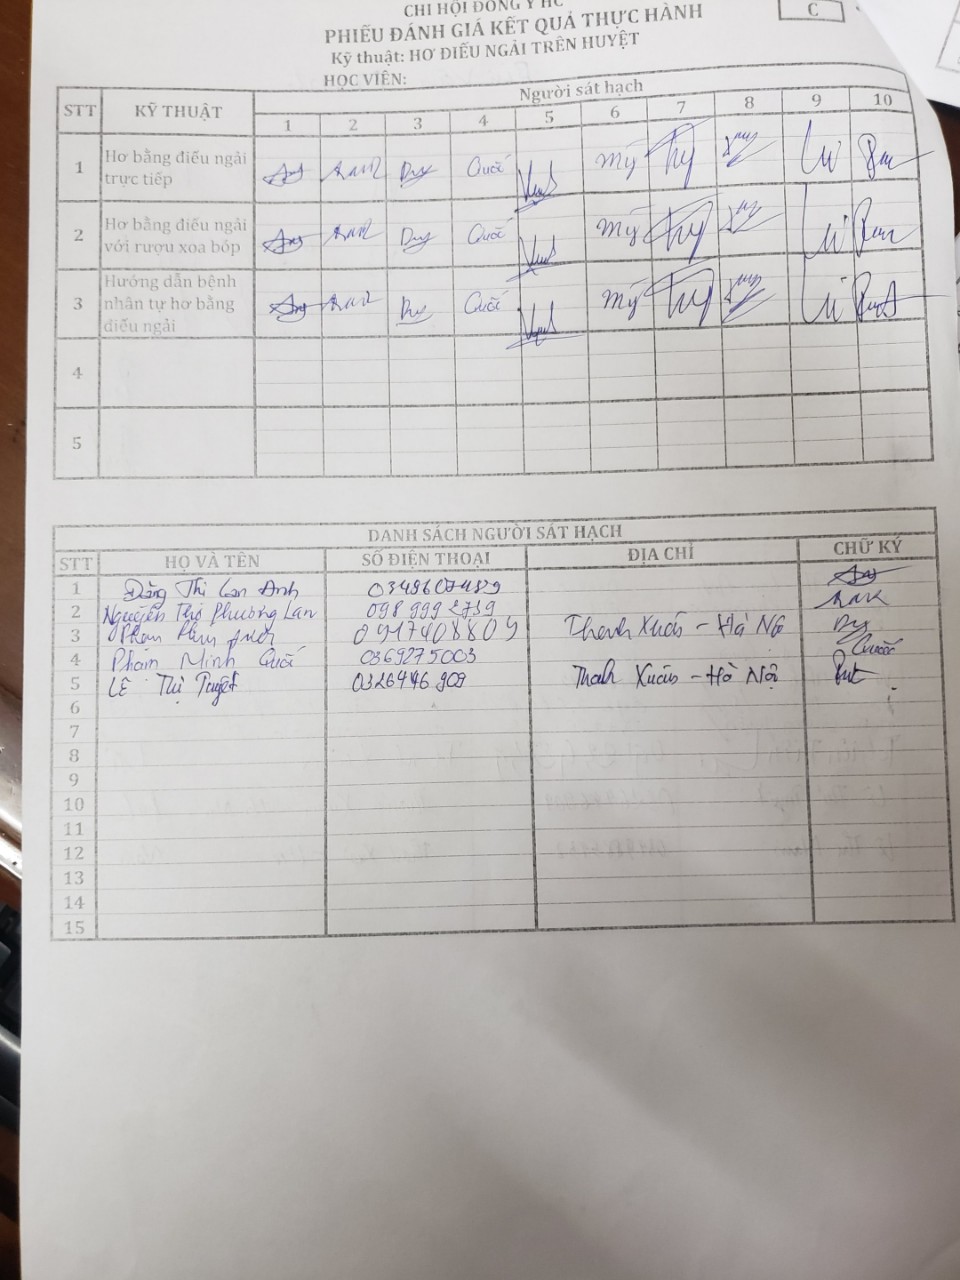 CHI HỘI ĐÔNG Y HC
C
PHIẾU ĐÁNH GIÁ KẾT QUẢ THỰC HÀNH
Kỹ thuật: HƠ ĐIẾU NGẢI TRÊN HUYỆT
HỌC VIÊN:
STT KỸ THUẬT Người sát hạch
1 2 3 4 5 6 7 8 9 10
1 Hơ bằng điếu ngải trực tiếp Lan Duy Quốc Mý
2 Hơ bằng điếu ngải với rượu xoa bóp Lan Duy Quốc Mý
3 Hướng dẫn bệnh nhân tự hơ bằng điếu ngải Lan Duy Quốc Mý
4
5
DANH SÁCH NGƯỜI SÁT HẠCH
STT HỌ VÀ TÊN SỐ ĐIỆN THOẠI ĐỊA CHỈ CHỮ KÝ
1 Đặng Thị Lan Anh
2 Nguyễn Thị Phương Lan 098 999 2739 Lan
3 Phan 0917408809 Thanh Xuân - Hà Nội Duy
4 Phạm Minh Quốc 0369275003 Quốc
5 Lê Thị Tuyết 0326446909 Thanh Xuân - Hà Nội
6
7
8
9
10
11
12
13
14
15